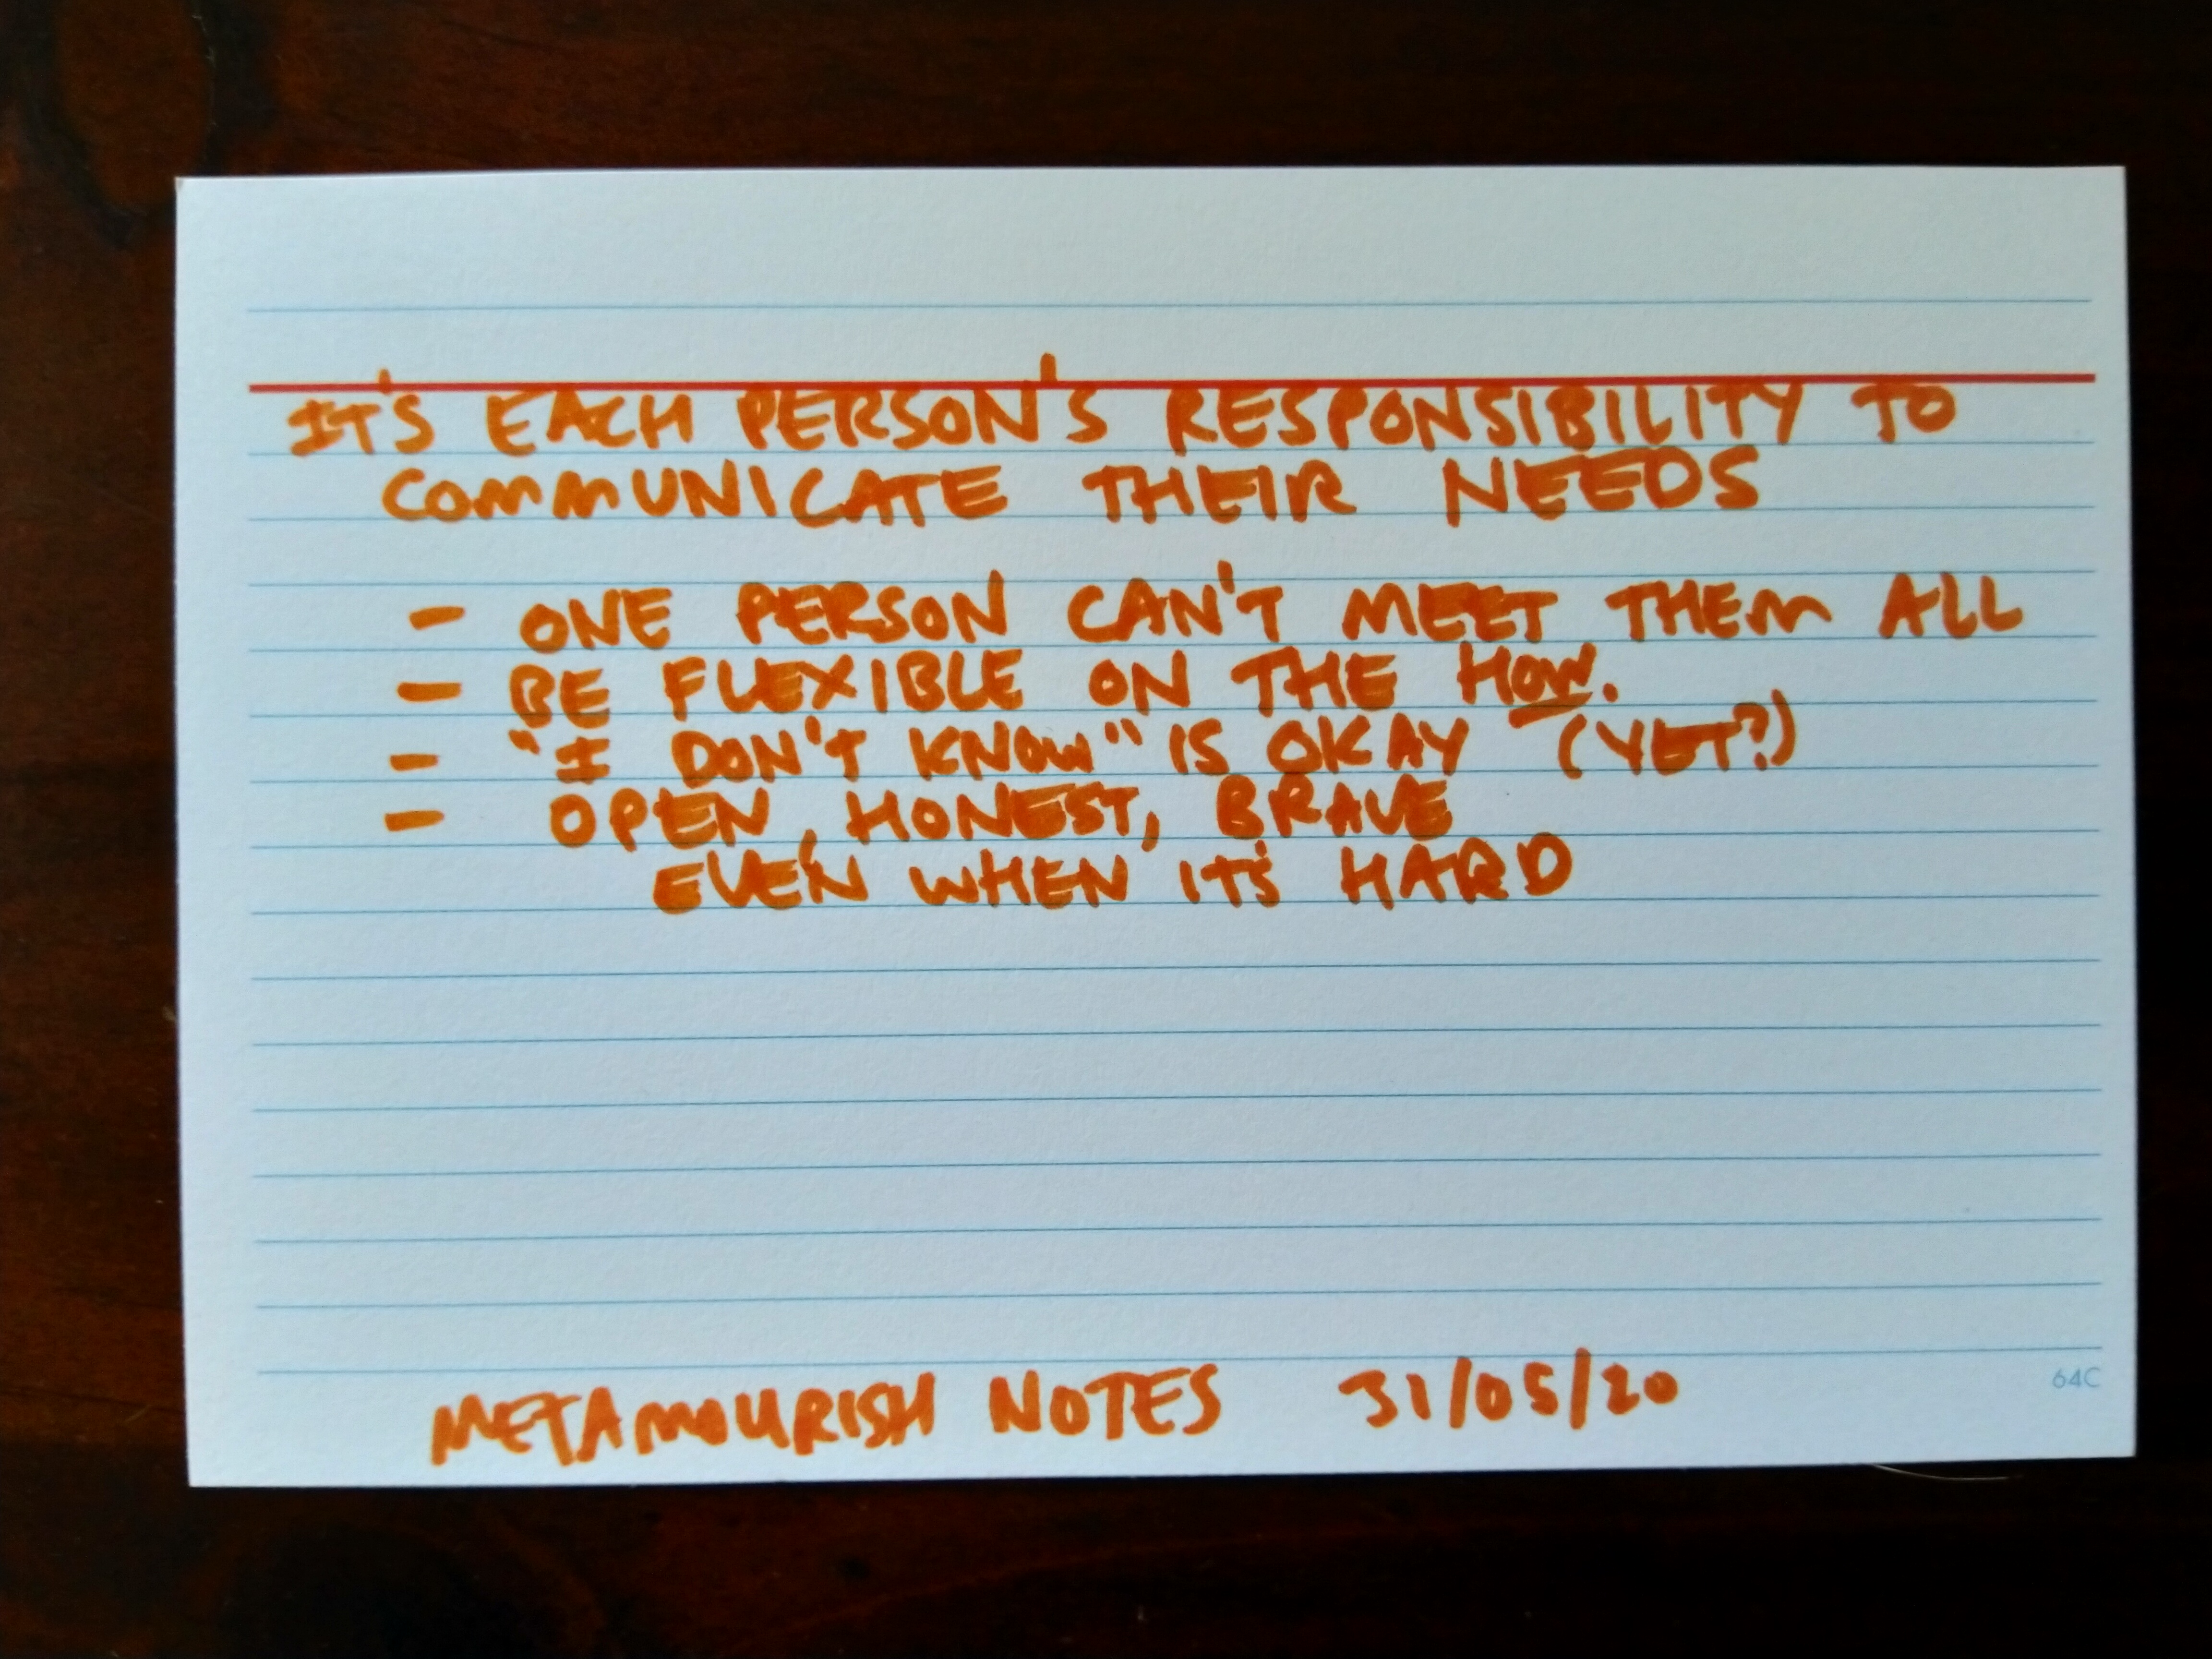 IT'S EACH PERSON'S RESPONSIBILITY TO
COMMUNICATE THEIR NEEDS
- ONE PERSON CAN'T MEET THEM ALL
- BE FLEXIBLE ON THE HOW.
- "I DON'T KNOW" IS OKAY (YET?)
- OPEN, HONEST, BRAVE
EVEN WHEN IT'S HARD
64C
METAMOURISH NOTES 31/05/20